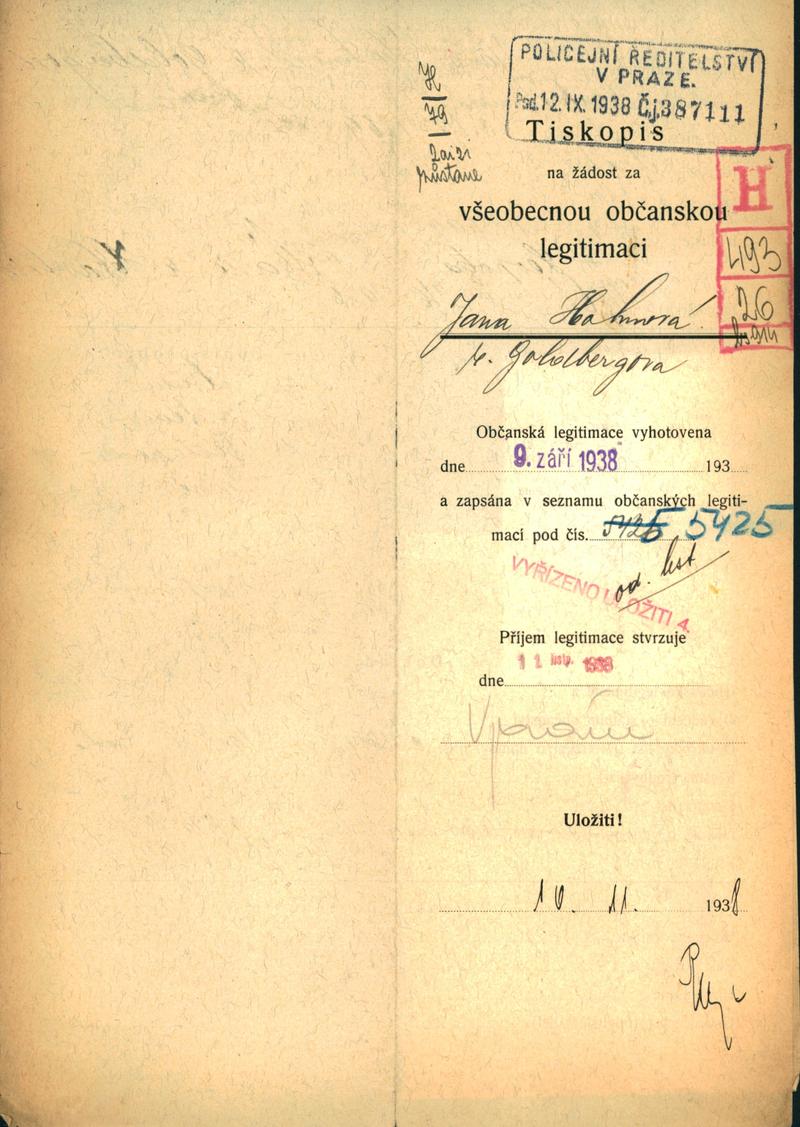 POLICEJNÍ ŘEDITELSTVÍ
V PRAZE.
Pod. 12. IX. 1938 Čj. 387111
H
79
Tiskopis
na žádost za
všeobecnou občanskou
legitimaci
H
493
26
Jana Hahnová
r. Goldbergova
Občanská legitimace vyhotovena
dne 9. září 1938 193
a zapsána v seznamu občanských legiti-
mací pod čís. 5425 5425
od. list
VYŘÍZENO ULOŽITI 4.
Příjem legitimace stvrzuje
11 listp. 1938
dne
Uložiti!
10. 11. 1938